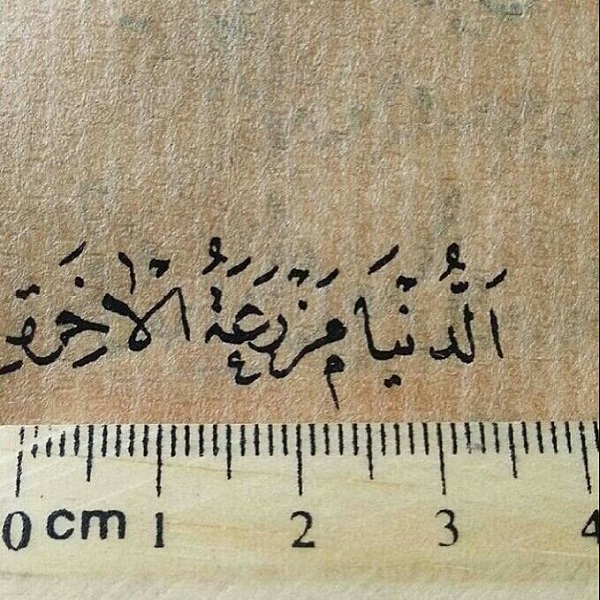 اَلدُّنْيَا مَزْرَعَةُ الْاٰخِرَةِ
0 cm 1 2 3 4